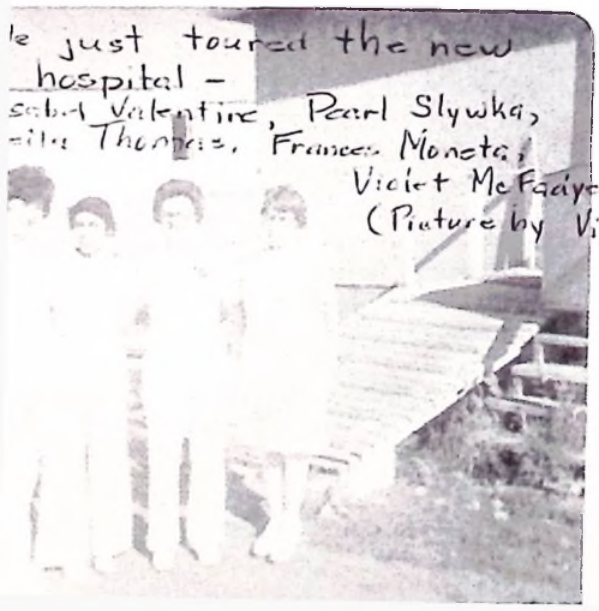 e just toured the new
hospital -
Valentine, Pearl Slywka,
Thomas, Frances Moneta,
Violet McFadye
(Picture by Vi